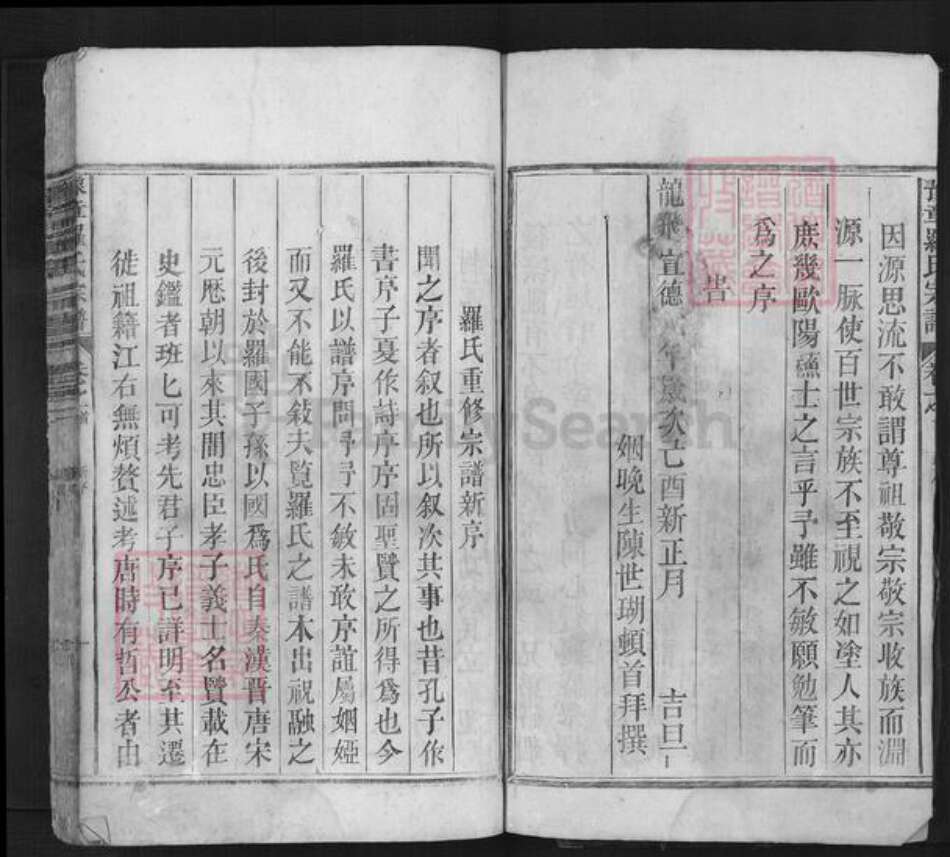 豫章羅氏宗譜
因源思流不敢謂尊祖敬宗敬宗收族而淵
源一脉使百世宗族不至視之如塗人其亦
庶幾歐陽蘇士之言乎予雖不敏願勉筆而
爲之序
旹
龍飛宣德 年歲次己酉新正月 吉旦
姻晚生陳世瑚頓首拜撰
羅氏重修宗譜新序
聞之序者叙也所以叙次其事也昔孔子作
書序子夏作詩序序固聖賢之所得爲也今
羅氏以譜序問予予不敏未敢序誼屬姻婭
而又不能不敍夫覽羅氏之譜本出祝融之
後封於羅國子孫以國爲氏自秦漢晉唐宋
元厯朝以來其間忠臣孝子義士名賢載在
史鑑者班匕可考先君子序已詳明至其遷
徙祖籍江右無煩贅述考唐時有哲公者由
豫章羅氏宗譜
FamilySearch